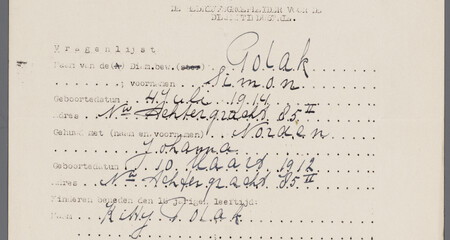 DE BEDRIJFSGENOTEN VOOR DE
Vragenlijst
Naam van de(n) Diam.bew.(ster) Polak
; voornamen Simon
Geboortedatum 4 Juli 1914
adres Nwe Achtergracht 85 II
Gehuwd met (naam en voornamen) Norden
Johanna
Geboortedatum 10 Maart 1912
adres Nwe Achtergracht 85 II
Kinderen beneden den 16 jarigen leeftijd:
Naam Kitty Polak